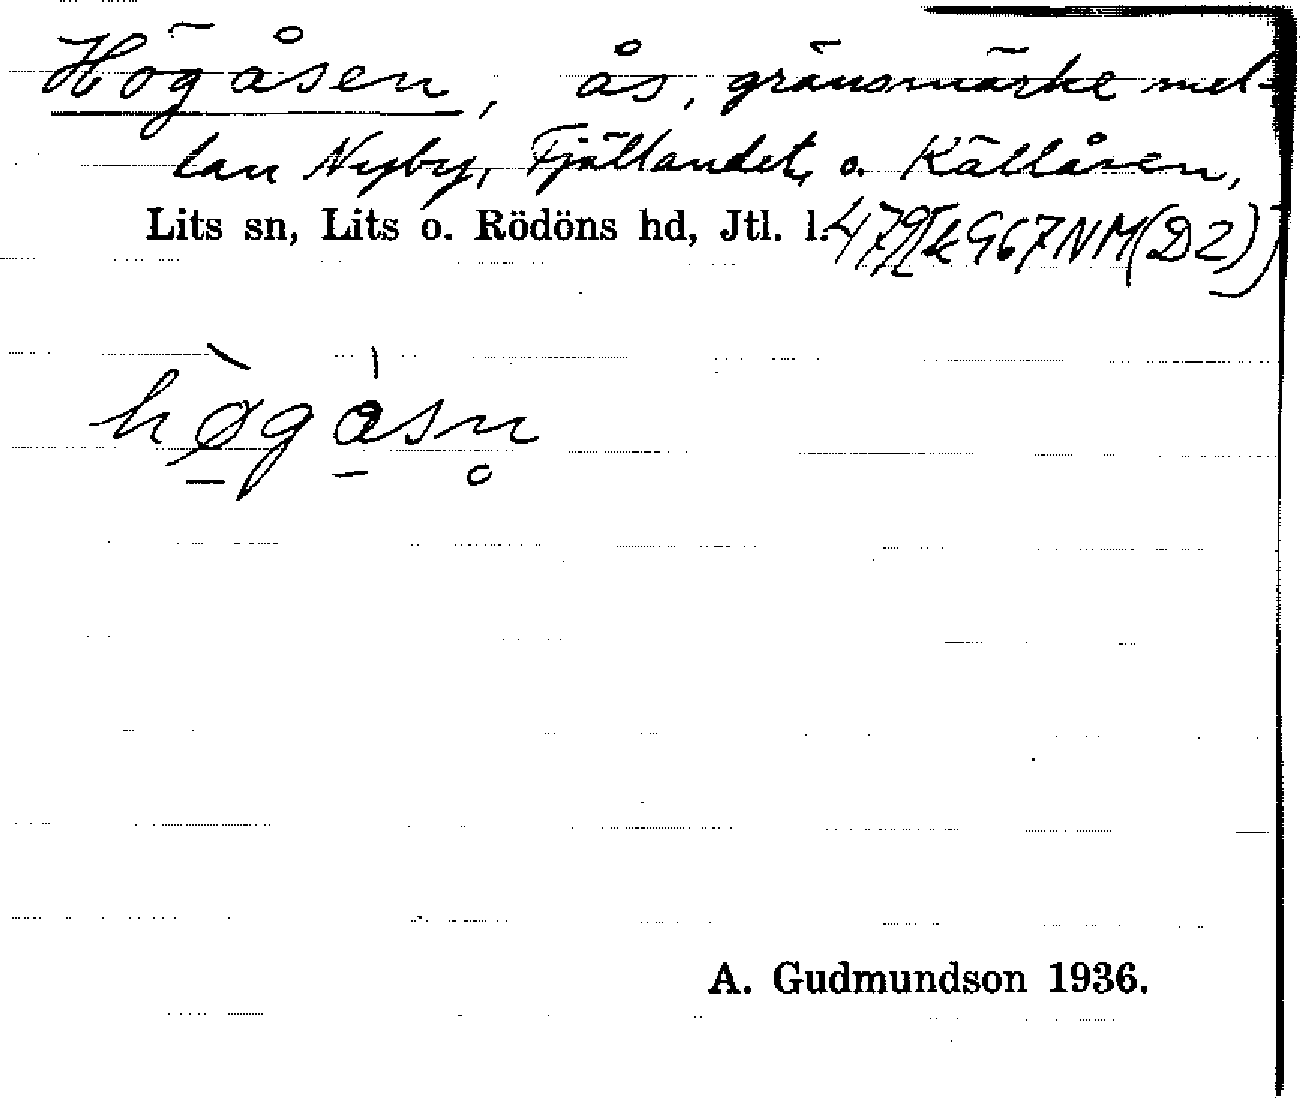 Högåsen, ås, gränsmärke mel-
lan Nyby, Fjällandet, o. Källåsen,
Lits sn, Lits o. Rödöns hd, Jtl. l.
høgåsn
A. Gudmundson 1936.